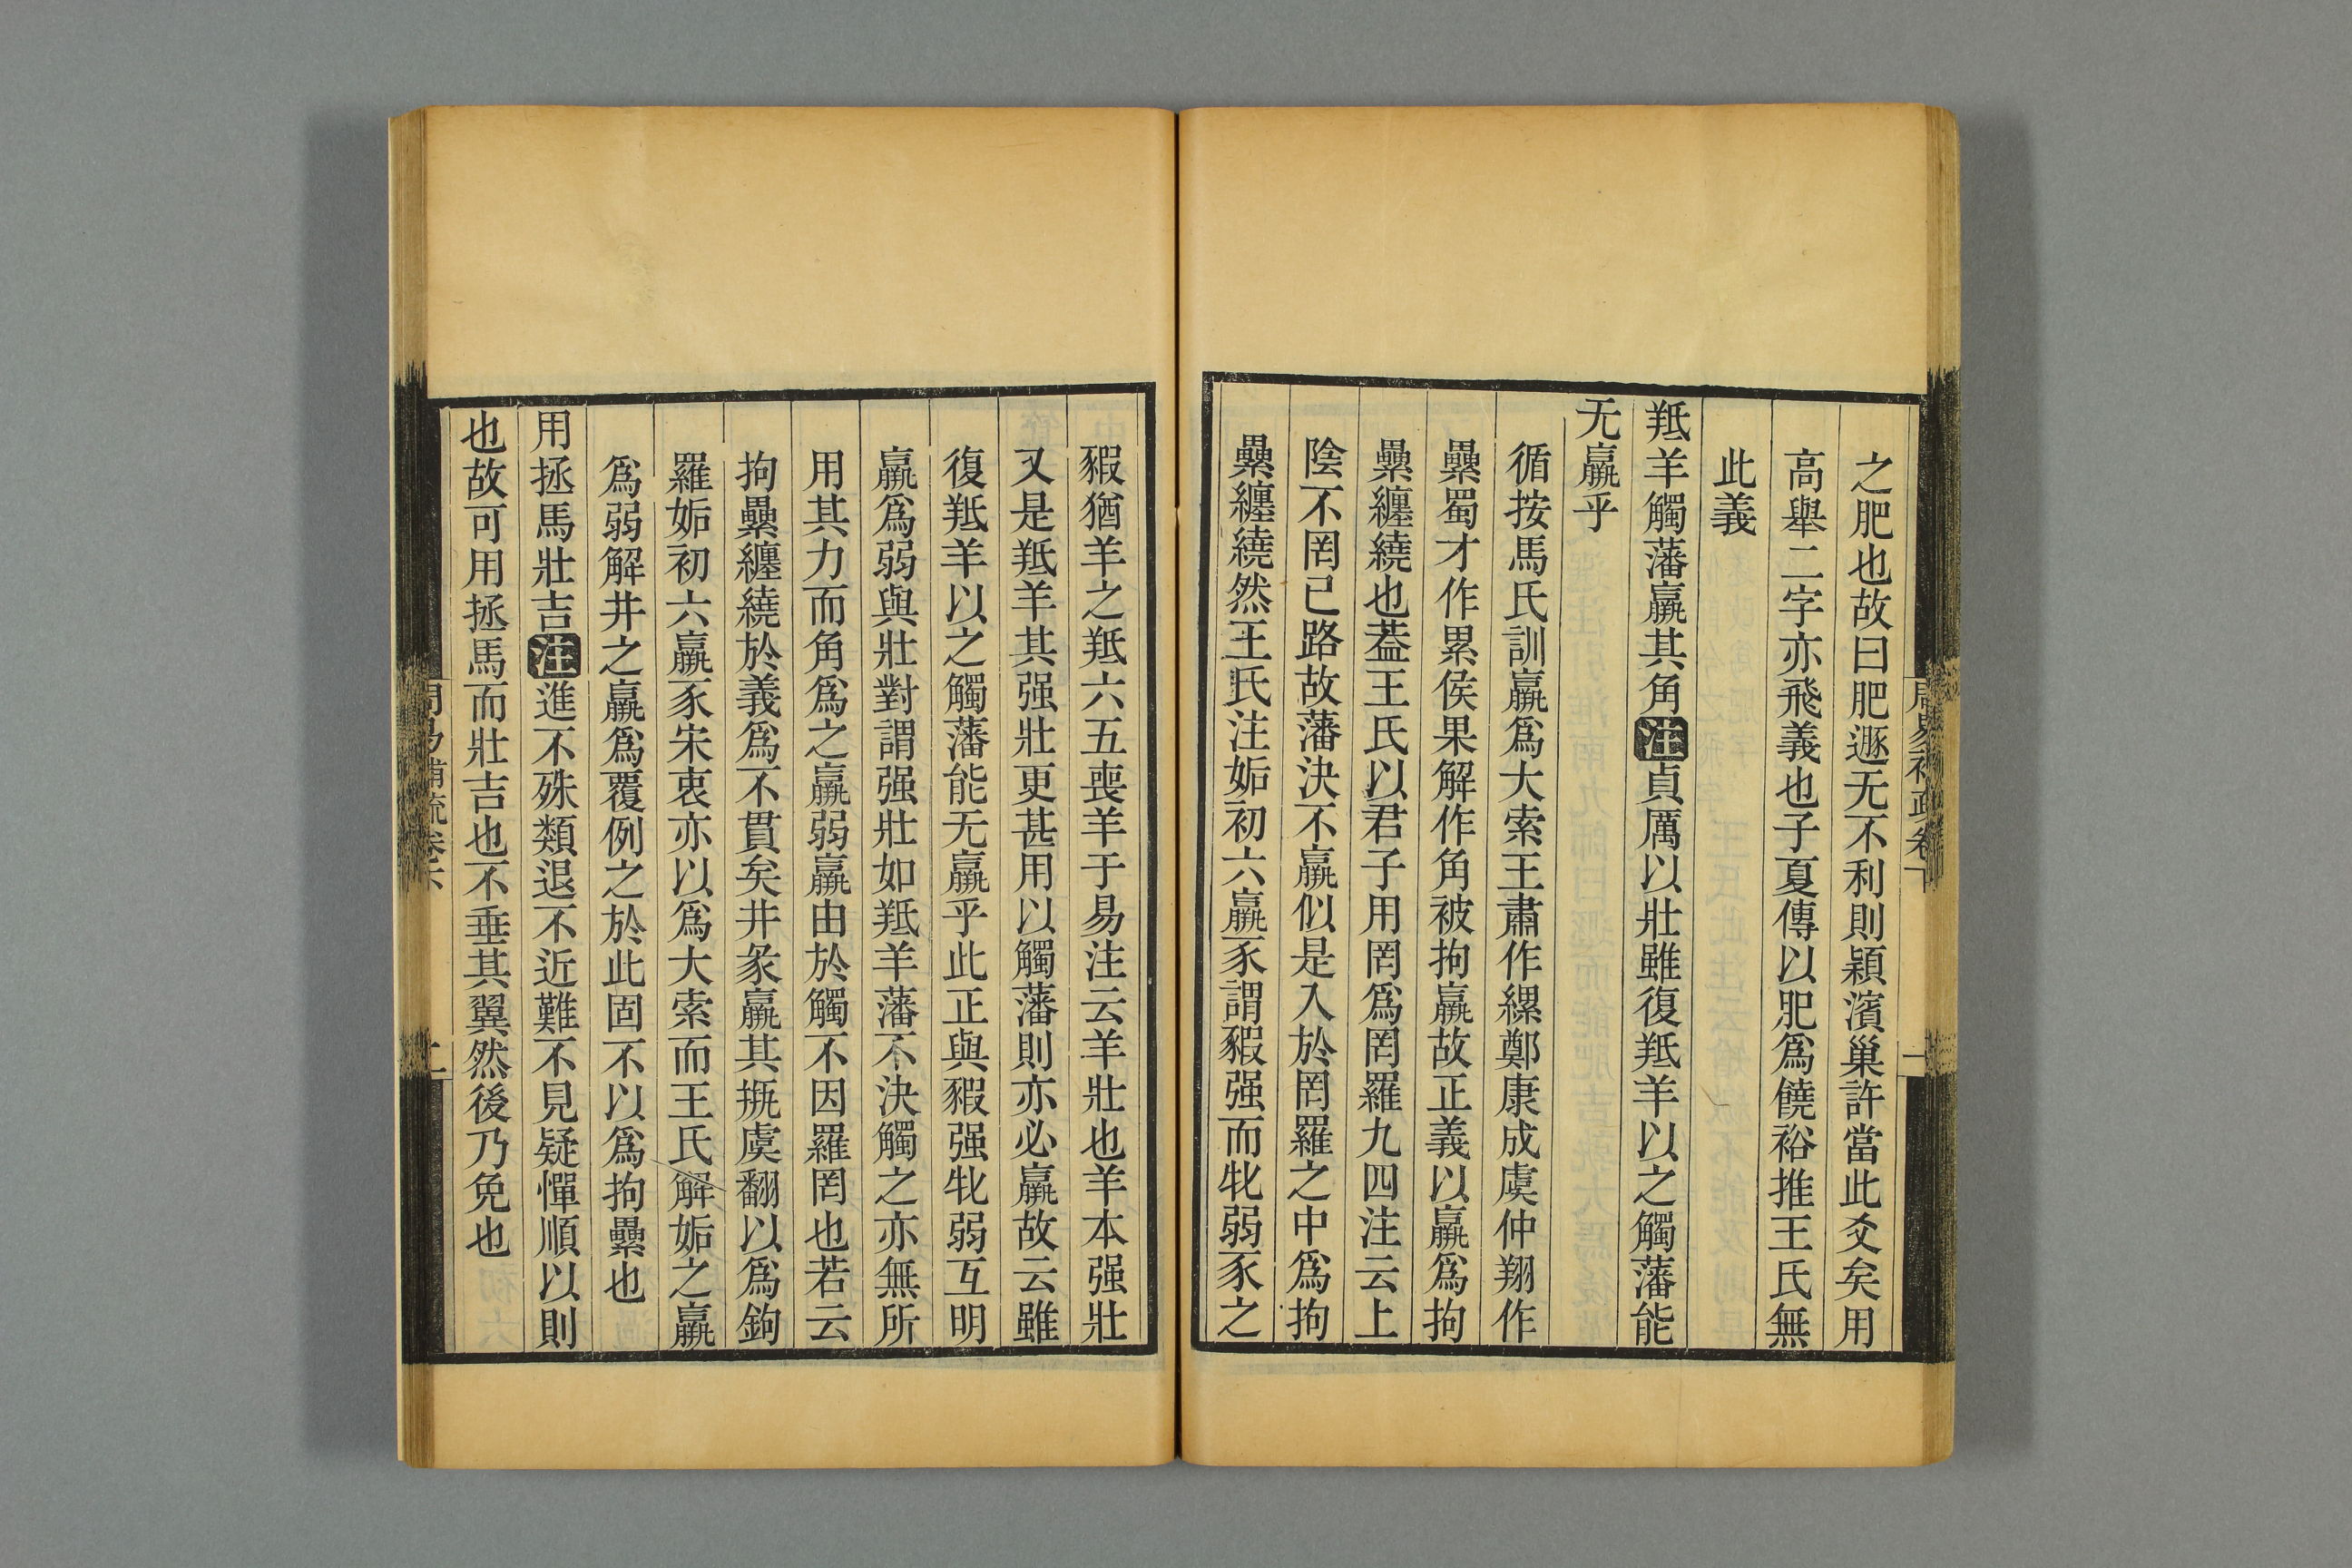 之肥也故曰肥遯无不利則穎濱巢許當此爻矣用
高舉二字亦飛義也子夏傳以肥爲饒裕推王氏無
此義
羝羊觸藩羸其角注貞厲以壯雖復羝羊以之觸藩能
无羸乎
循按馬氏訓羸爲大索王肅作縲鄭康成虞仲翔作
纍蜀才作累侯果解作角被拘羸故正義以羸爲拘
纍纏繞也葢王氏以君子用罔爲罔羅九四注云上
陰不罔已路故藩決不羸似是入於罔羅之中爲拘
纍纏繞然王氏注姤初六羸豕謂豭强而牝弱豕之
豭猶羊之羝六五喪羊于易注云羊壯也羊本强壯
又是羝羊其强壯更甚用以觸藩則亦必羸故云雖
復羝羊以之觸藩能无羸乎此正與豭强牝弱互明
羸爲弱與壯對謂强壯如羝羊藩不決觸之亦無所
用其力而角爲之羸弱羸由於觸不因羅罔也若云
拘纍纏繞於義爲不貫矣井彖羸其瓶虞翻以爲鉤
羅姤初六羸豕宋衷亦以爲大索而王氏解姤之羸
爲弱解井之羸爲覆例之於此固不以爲拘纍也
用拯馬壯吉注進不殊類退不近難不見疑憚順以則
也故可用拯馬而壯吉也不垂其翼然後乃免也
周易補疏卷下
二